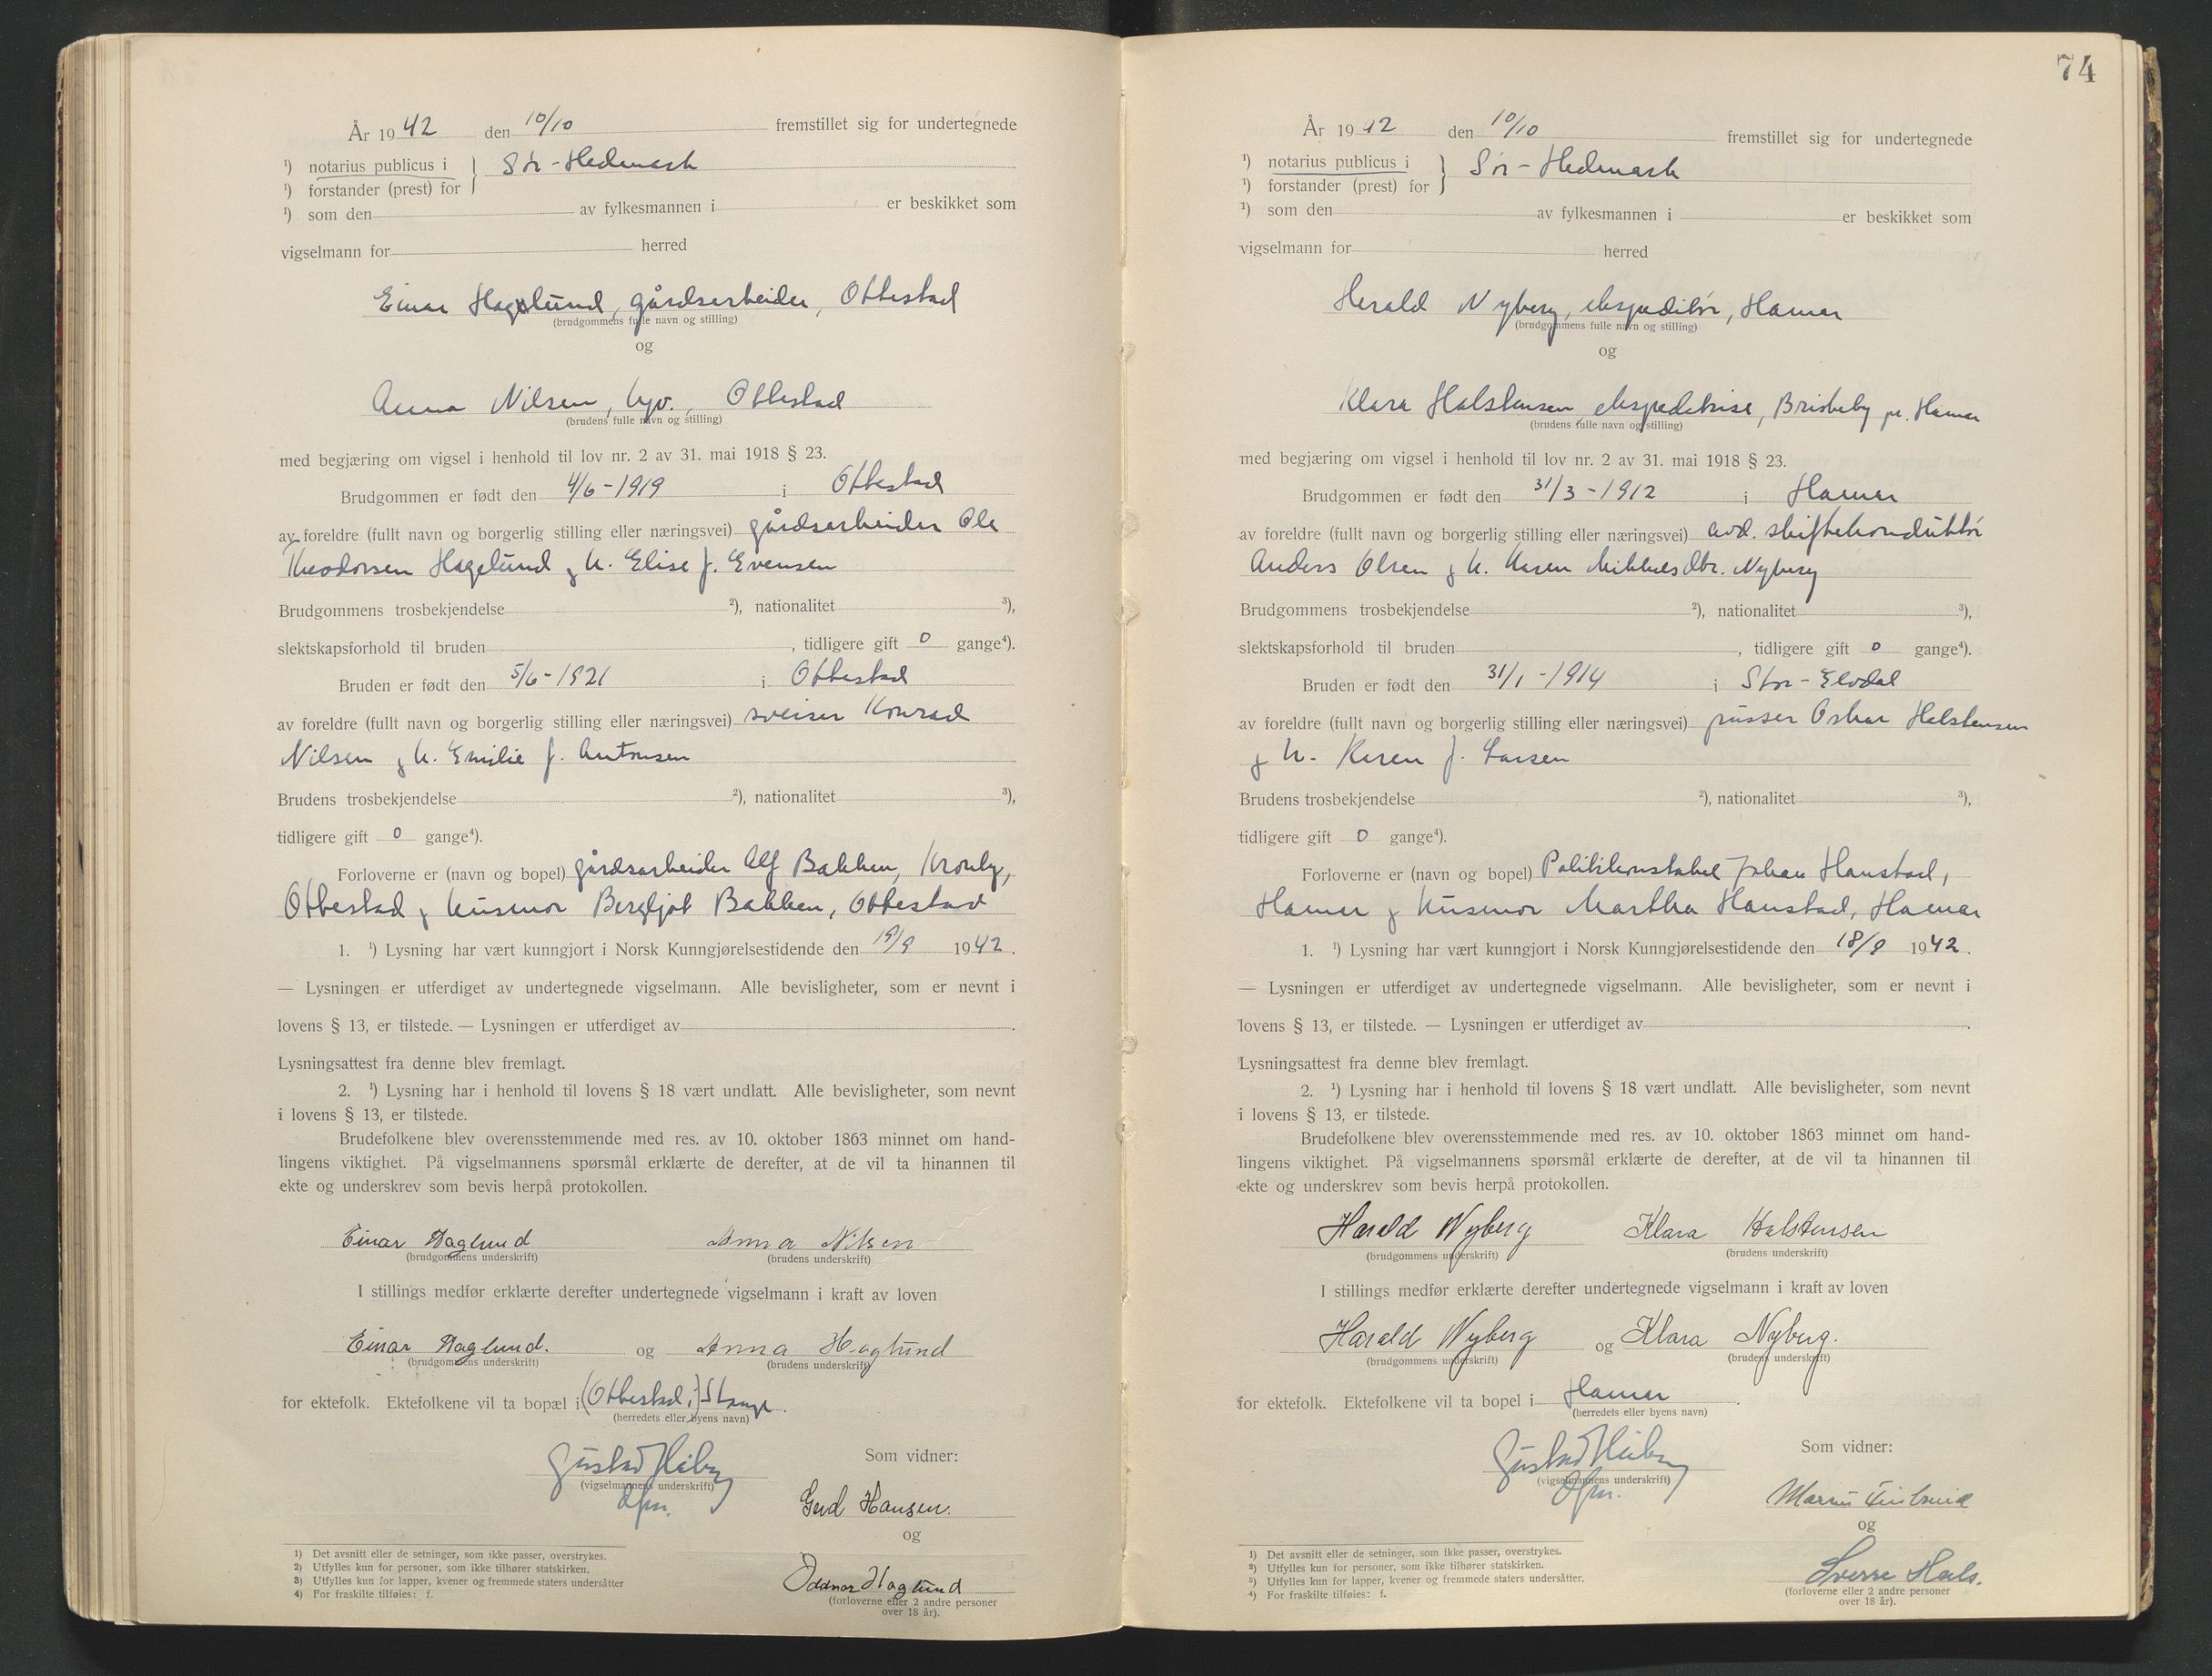 År 1942 den 10/10 fremstillet sig for undertegnede
¹) notarius publicus i } Sør-Hedmark
¹) forstander (prest) for
¹) som den av fylkesmannen i er beskikket som
vigselmann for herred
Einar Haglund, gårdsarbeider, Ottestad
(brudgommens fulle navn og stilling)
og
Anna Nilsen, hjv., Ottestad
(brudens fulle navn og stilling)
med begjæring om vigsel i henhold til lov nr. 2 av 31. mai 1918 § 23.
Brudgommen er født den 4/6-1919 i Ottestad
av foreldre (fullt navn og borgerlig stilling eller næringsvei) gårdsarbeider Ole
Theodorsen Hagelund & h. Elise f. Evensen
Brudgommens trosbekjendelse ²), nationalitet ³),
slektskapsforhold til bruden , tidligere gift 0 gange⁴).
Bruden er født den 5/6-1921 i Ottestad
av foreldre (fullt navn og borgerlig stilling eller næringsvei) sveiser Konrad
Nilsen & h. Emilie f. Antonsen
Brudens trosbekjendelse ²), nationalitet ³),
tidligere gift 0 gange⁴).
Forloverne er (navn og bopel) gårdsarbeider Alf Bakken, Kronby,
Ottestad & husmor Bergljot Bakken, Ottestad
1. ¹) Lysning har vært kunngjort i Norsk Kunngjørelsestidende den 19/9 1942.
— Lysningen er utferdiget av undertegnede vigselmann. Alle bevisligheter, som er nevnt i
lovens § 13, er tilstede. — Lysningen er utferdiget av .
Lysningsattest fra denne blev fremlagt.
2. ¹) Lysning har i henhold til lovens § 18 vært undlatt. Alle bevisligheter, som nevnt
i lovens § 13, er tilstede.
Brudefolkene blev overensstemmende med res. av 10. oktober 1863 minnet om hand-
lingens viktighet. På vigselmannens spørsmål erklærte de derefter, at de vil ta hinannen til
ekte og underskrev som bevis herpå protokollen.
Einar Haglund Anna Nilsen
(brudgommens underskrift) (brudens underskrift)
I stillings medfør erklærte derefter undertegnede vigselmann i kraft av loven
Einar Haglund. og Anna Haglund
(brudgommens underskrift) (brudens underskrift)
for ektefolk. Ektefolkene vil ta bopæl i (Ottestad i) Stange.
(herredets eller byens navn)
Gustav Heiberg
(vigselmannens underskrift)
dfm.
Som vidner:
Gerd Hansen.
og
Oddnar Haglund
(forloverne eller 2 andre personer
over 18 år).
1) Det avsnitt eller de setninger, som ikke passer, overstrykes.
2) Utfylles kun for personer, som ikke tilhører statskirken.
3) Utfylles kun for lapper, kvener og fremmede staters undersåtter
4) For fraskilte tilføies: f.
74
År 1942 den 10/10 fremstillet sig for undertegnede
¹) notarius publicus i } Sør-Hedmark
¹) forstander (prest) for
¹) som den av fylkesmannen i er beskikket som
vigselmann for herred
Harald Nyberg, ekspeditør, Hamar
(brudgommens fulle navn og stilling)
og
Klara Halstensen, ekspeditrise, Briskeby pr. Hamar
(brudens fulle navn og stilling)
med begjæring om vigsel i henhold til lov nr. 2 av 31. mai 1918 § 23.
Brudgommen er født den 31/3-1912 i Hamar
av foreldre (fullt navn og borgerlig stilling eller næringsvei) avd. skiftekonduktør
Anders Olsen & h. Karen Mikkelsdtr. Nyberg
Brudgommens trosbekjendelse ²), nationalitet ³),
slektskapsforhold til bruden , tidligere gift 0 gange⁴).
Bruden er født den 31/1-1914 i Stor-Elvdal
av foreldre (fullt navn og borgerlig stilling eller næringsvei) pusser Oskar Halstensen
& h. Karen f. Larsen
Brudens trosbekjendelse ²), nationalitet ³),
tidligere gift 0 gange⁴).
Forloverne er (navn og bopel) Politikonstabel Johan Hanstad,
Hamar & husmor Martha Hanstad, Hamar
1. ¹) Lysning har vært kunngjort i Norsk Kunngjørelsestidende den 18/9 1942.
— Lysningen er utferdiget av undertegnede vigselmann. Alle bevisligheter, som er nevnt i
lovens § 13, er tilstede. — Lysningen er utferdiget av .
Lysningsattest fra denne blev fremlagt.
2. ¹) Lysning har i henhold til lovens § 18 vært undlatt. Alle bevisligheter, som nevnt
i lovens § 13, er tilstede.
Brudefolkene blev overensstemmende med res. av 10. oktober 1863 minnet om hand-
lingens viktighet. På vigselmannens spørsmål erklærte de derefter, at de vil ta hinannen til
ekte og underskrev som bevis herpå protokollen.
Harald Nyberg Klara Halstensen
(brudgommens underskrift) (brudens underskrift)
I stillings medfør erklærte derefter undertegnede vigselmann i kraft av loven
Harald Nyberg og Klara Nyberg.
(brudgommens underskrift) (brudens underskrift)
for ektefolk. Ektefolkene vil ta bopel i Hamar.
(herredets eller byens navn)
Gustav Heiberg
(vigselmannens underskrift)
dfm.
Som vidner:
og
Sverre
(forloverne eller 2 andre personer
over 18 år).
1) Det avsnitt eller de setninger, som ikke passer, overstrykes.
2) Utfylles kun for personer, som ikke tilhører statskirken.
3) Utfylles kun for lapper, kvener og fremmede staters undersåtter.
4) For fraskilte tilføies: f.